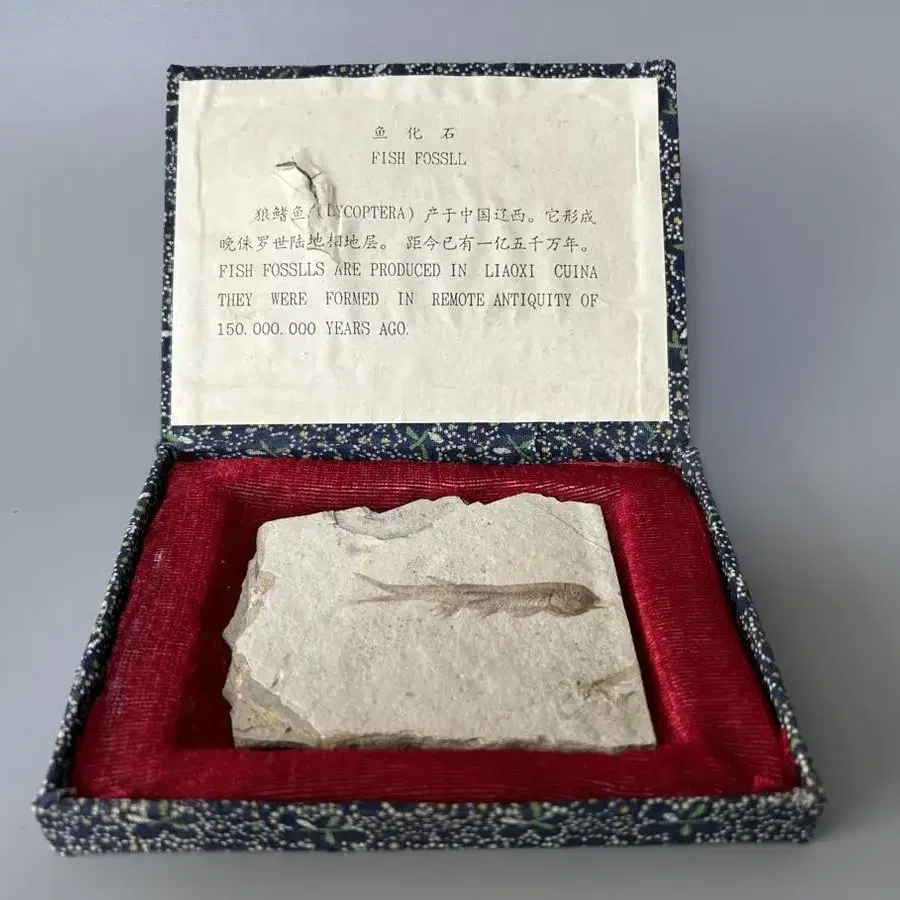 鱼 化 石
FISH FOSSLL
狼鳍鱼 (LYCOPTERA) 产于中国辽西。它形成
晚侏罗世陆地相地层。 距今已有一亿五千万年。
FISH FOSSLLS ARE PRODUCED IN LIAOXI CUINA
THEY WERE FORMED IN REMOTE ANTIQUITY OF
150.000.000 YEARS AGO.